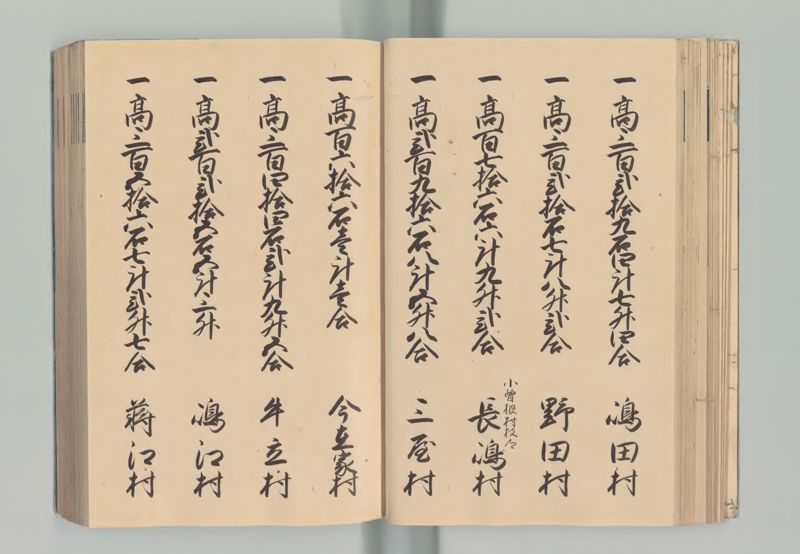 一 高三百弐拾九石四斗七升四合 嶋田村
一 高三百弐拾石七斗八升弐合 野田村
一 高百七拾六石六斗九升弐合 小曽根村枝郷 長嶋村
一 高弐百九拾六石八斗五升八合 三屋村
一 高百六拾六石壱斗壱合 今在家村
一 高三百四拾四石弐斗九升五合 牛立村
一 高弐百弐拾五石五斗三升 嶋江村
一 高三百五拾六石七斗弐升七合 蒋江村